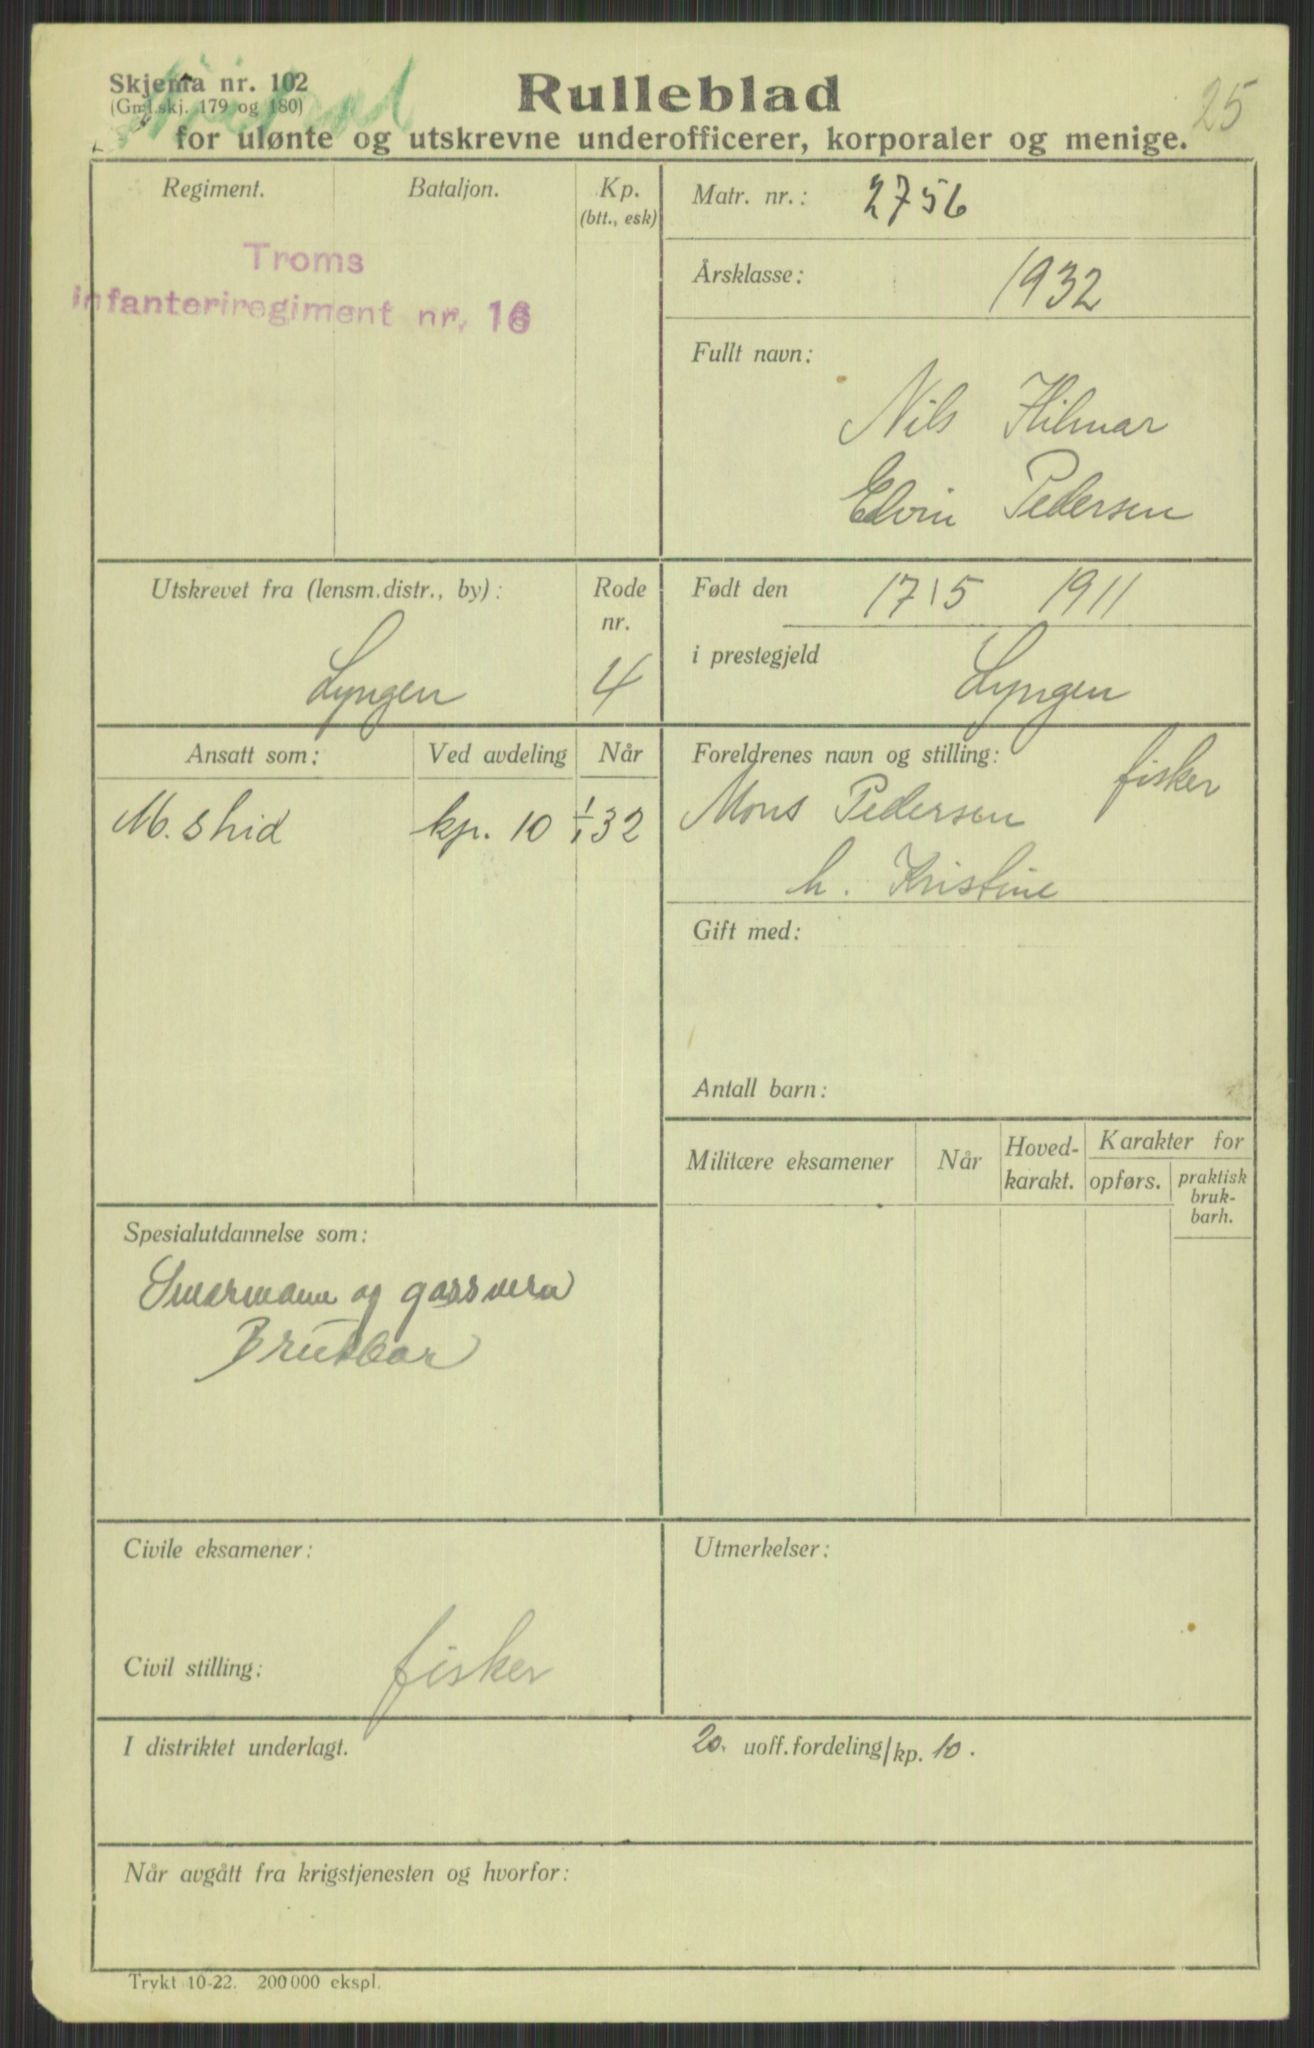 Skjema nr. 102
(Gml. skj. 179 og 180)
Rulleblad
25
for ulønte og utskrevne underofficerer, korporaler og menige.
Regiment.
Bataljon.
Kp.
(btt., esk)
Troms
infanteriregiment nr. 16
Matr. nr.: 2756
Årsklasse: 1932
Fullt navn:
Nils Hilmar
Edvin Pedersen
Utskrevet fra (lensm.distr., by):
Lyngen
Rode
nr.
4
Født den 17/5 1911
i prestegjeld Lyngen
Ansatt som:
Ved avdeling
Når
M. skid kp. 10 1/1 32
Foreldrenes navn og stilling:
Mons Pedersen fisker
h. Kristine
Gift med:
Antall barn:
Militære eksamener
Når
Hoved-
karakt.
Karakter for
opførs.
praktisk
bruk-
barh.
Spesialutdannelse som:
og gassvern
Brukbar
Civile eksamener:
Civil stilling: fisker
Utmerkelser:
I distriktet underlagt.
20. uoff. fordeling/kp. 10.
Når avgått fra krigstjenesten og hvorfor:
Trykt 10-22. 200 000 ekspl.